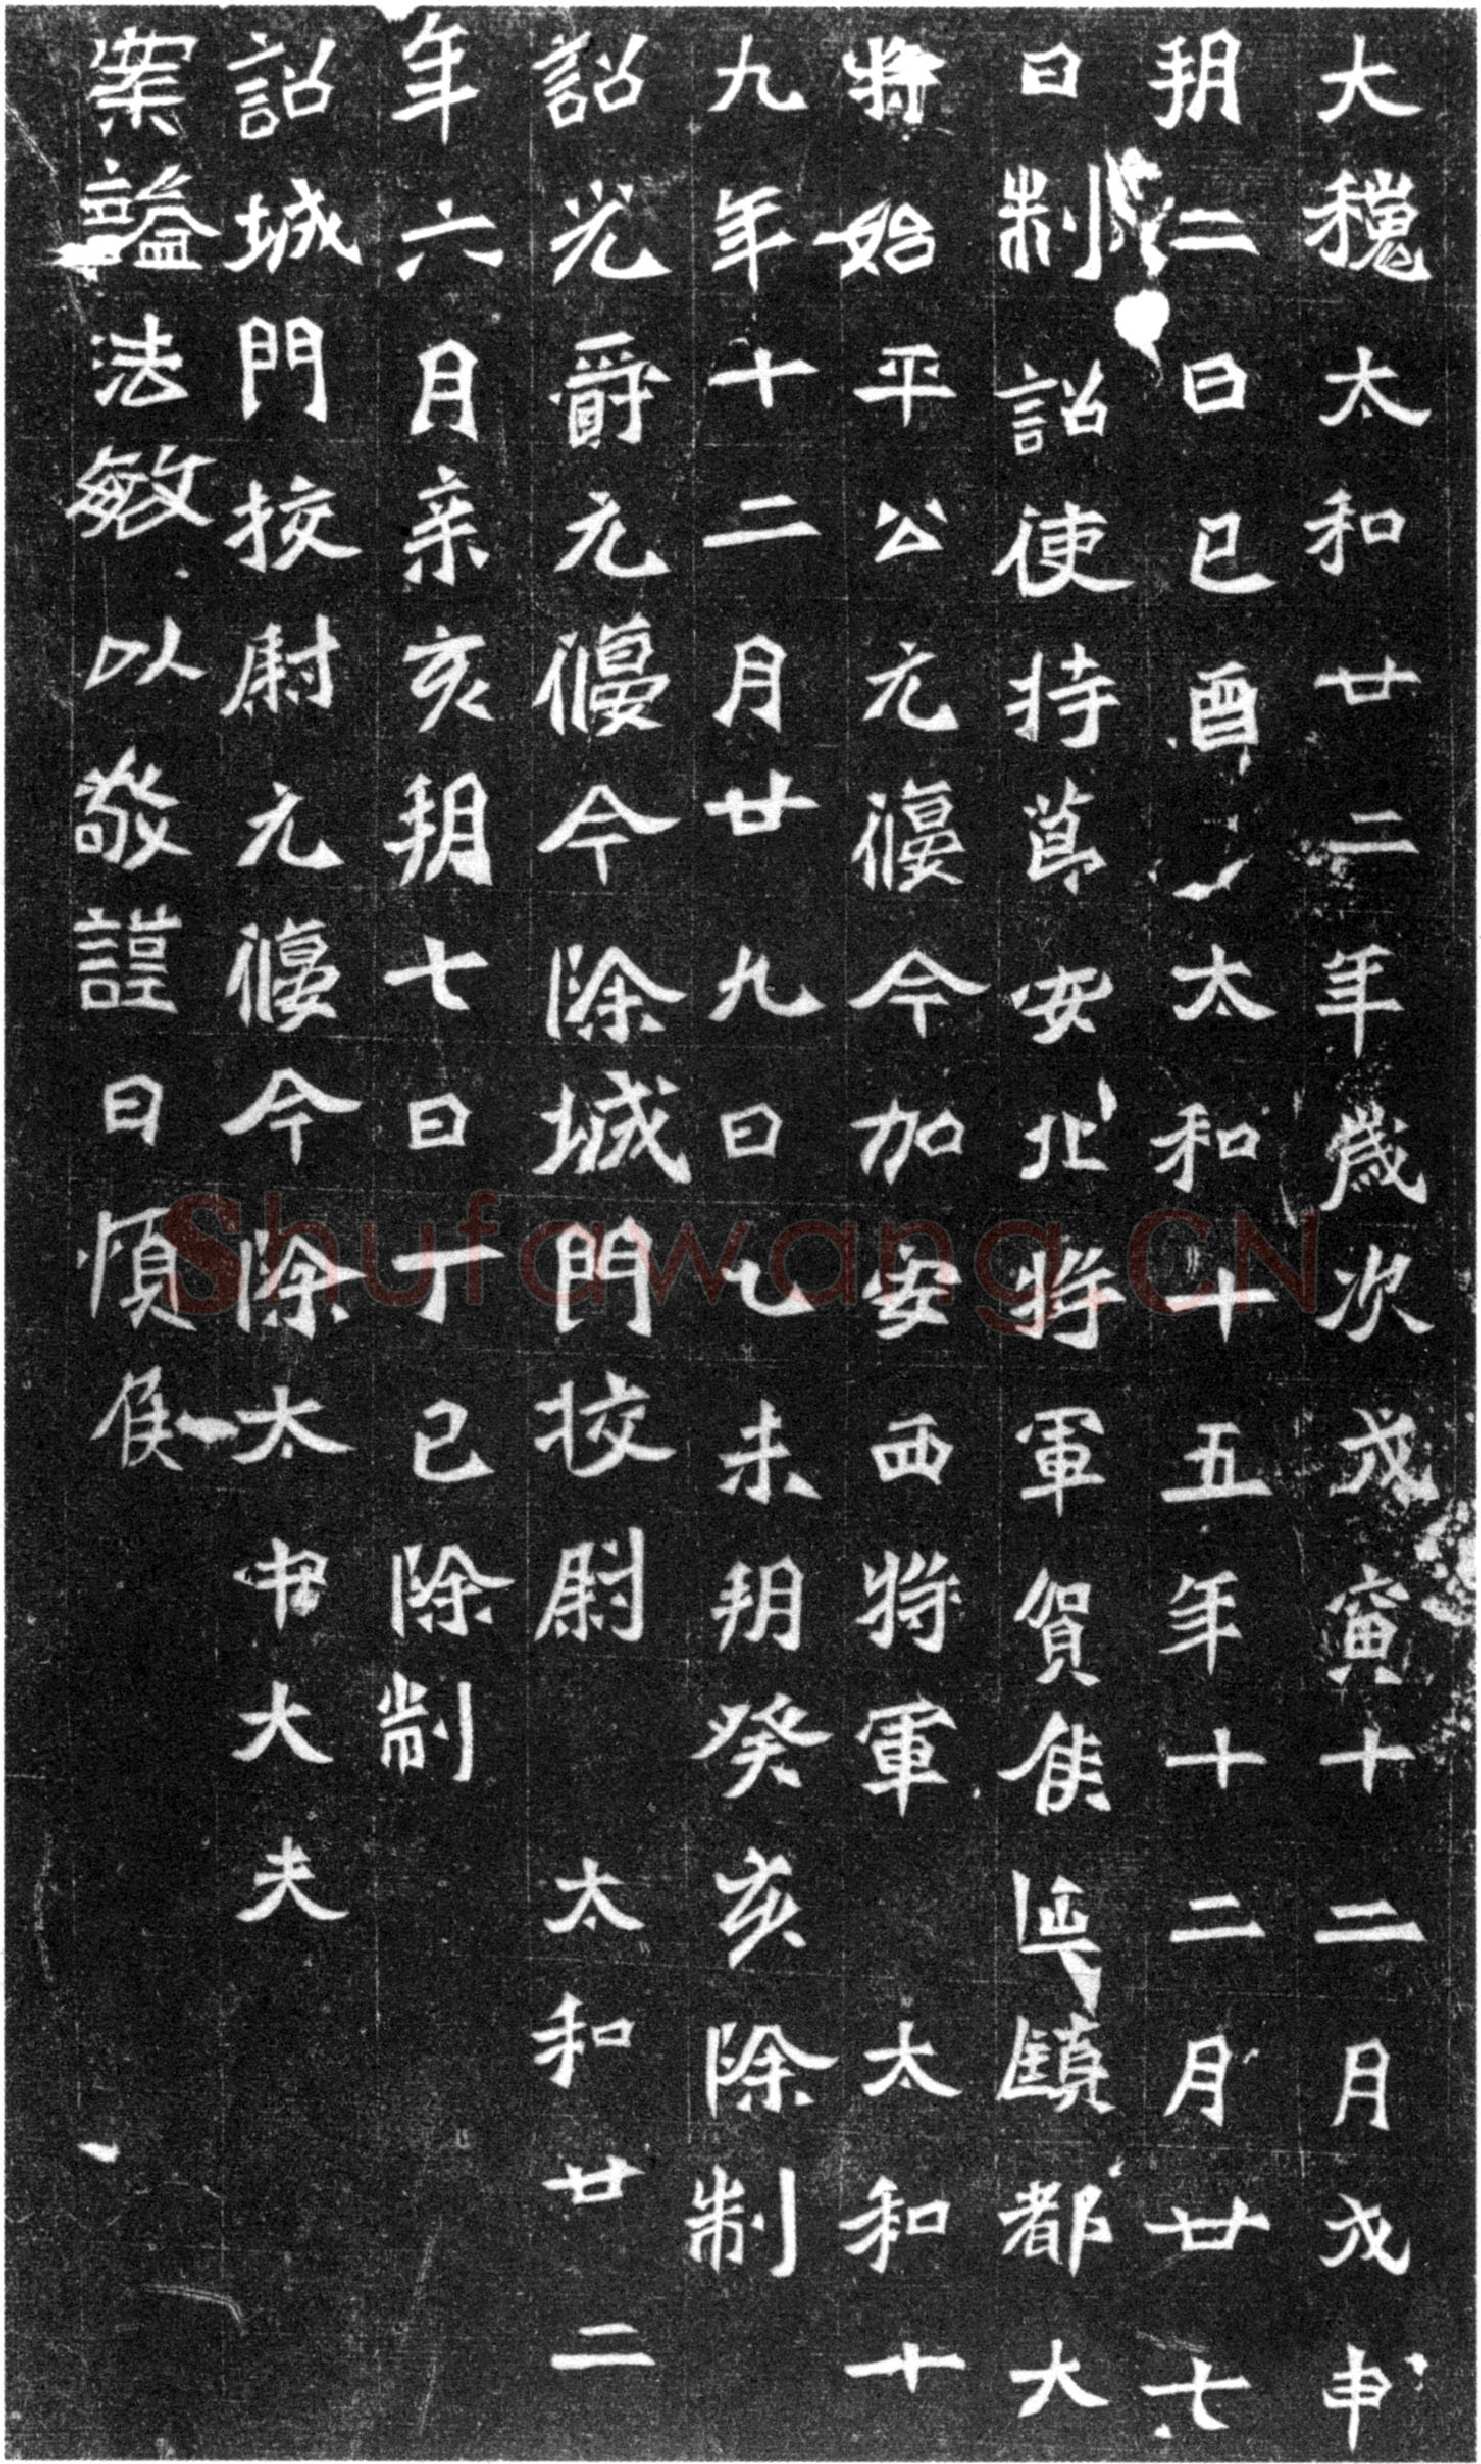 大魏太和廿二年歲次戊寅十二月戊申
朔二日己酉太和十五年十二月廿七
日制詔使持節安北將軍賀侯延鎮都大
將始平公元偃今加安西將軍太和十
九年十二月廿九日乙未朔癸亥除制
詔光爵元偃今除城門挍尉太和廿二
年六月辛亥朔七日丁巳除制
詔城門挍尉元偃今除太中大夫
案謚法敏以敬謹曰順侯
Shufawang.CN